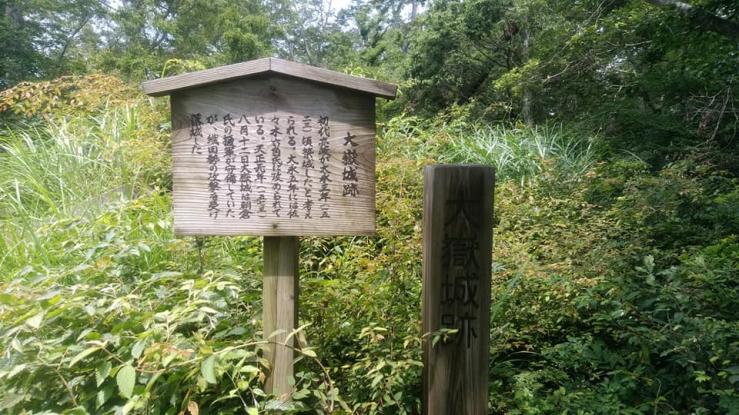 大嶽城跡
初代亮政が大永三年(一五
二三)頃築城したと考え
られる。大永五年には佐
々木六角氏に攻められて
いる。天正元年(一五七三)
八月十二日大嶽城は朝倉
氏の援軍が守備していた
が、織田勢の攻撃を受け
落城した。
大嶽城跡